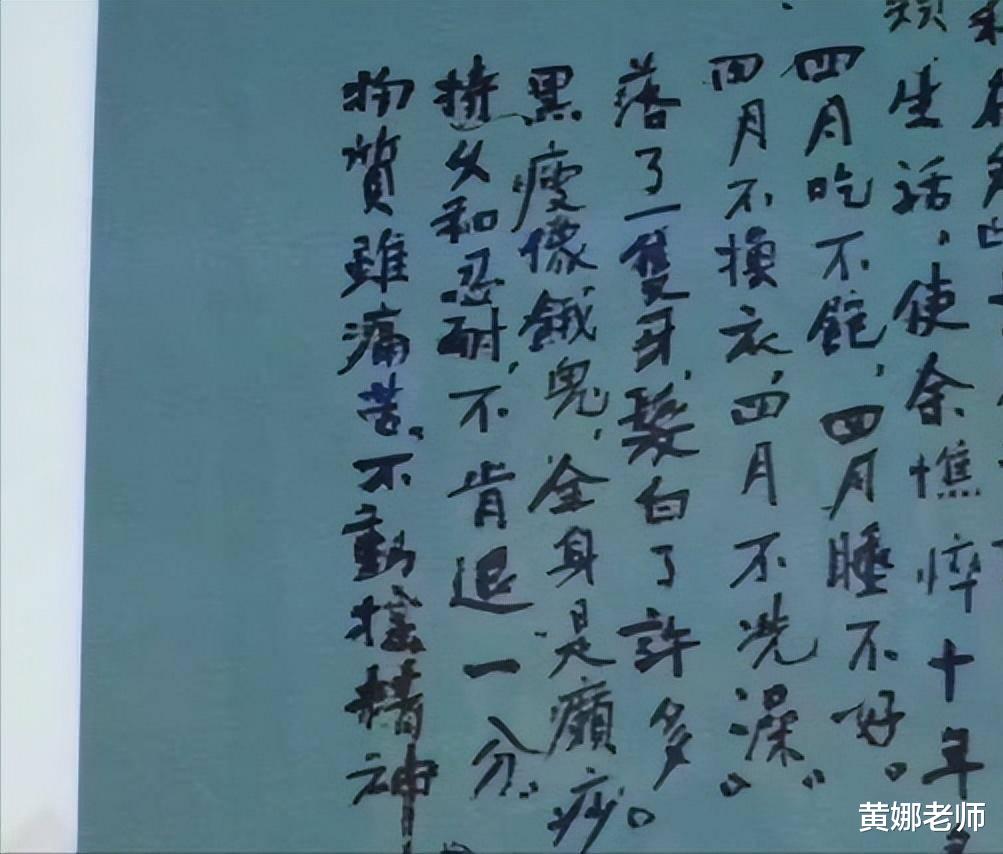 生活,使余憔悴十年
四月吃不飽,四月睡不好。
四月不換衣,四月不洗澡。
落了一隻牙,髮白了許多。
黑瘦像餓鬼,全身是癩痧。
持久和忍耐,不肯退一分。
物質雖痛苦,不動搖精神
黄娜老师